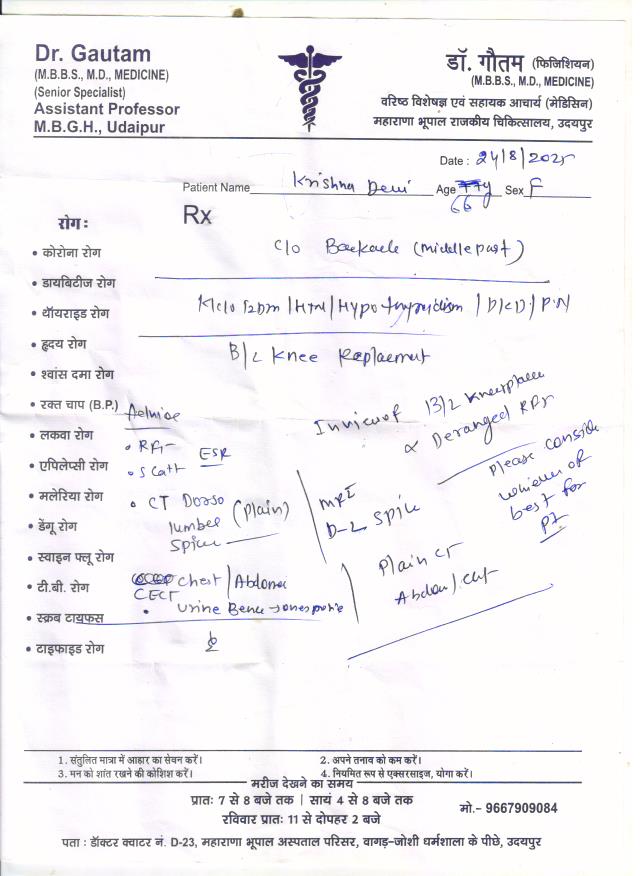 Dr. Gautam
(M.B.B.S., M.D., MEDICINE)
(Senior Specialist)
Assistant Professor
M.B.G.H., Udaipur
डॉ. गौतम (फिजिशियन)
(M.B.B.S., M.D., MEDICINE)
वरिष्ठ विशेषज्ञ एवं सहायक आचार्य (मेडिसिन)
महाराणा भूपाल राजकीय चिकित्सालय, उदयपुर
Date : 24/8/2025
Patient Name Krishna Devi Age 66 y Sex F
Rx
रोग :
• कोरोना रोग
• डायबिटीज रोग
• थॉयराइड रोग
• हृदय रोग
• श्वांस दमा रोग
• रक्त चाप (B.P.)
• लकवा रोग
• एपिलेप्सी रोग
• मलेरिया रोग
• डेंगू रोग
• स्वाइन फ्लू रोग
• टी.बी. रोग
• स्क्रब टायफस
• टाइफाइड रोग
C/o Backache (Middle part)
K/c/o T2DM / HTN / Hypothyroidism /
B/L Knee Replacement
Advise
• RFT
ESR
• CT Dorso
lumber (Plain)
Spine
Chest / Abdomen
CECT
• Urine Bence Jones protein
Inview of B/L Knee replace
Deranged RFT
MRI
D-L Spine
Please conside
whichever
best for
Pt
Plain CT
Abdom / Chest
1. संतुलित मात्रा में आहार का सेवन करें।
2. अपने तनाव को कम करें।
3. मन को शांत रखने की कोशिश करें।
4. नियमित रूप से एक्सरसाइज, योगा करें।
मरीज देखने का समय
प्रातः 7 से 8 बजे तक | सायं 4 से 8 बजे तक
रविवार प्रातः 11 से दोपहर 2 बजे
मो.- 9667909084
पता : डॉक्टर क्वाटर नं. D-23, महाराणा भूपाल अस्पताल परिसर, वागड़-जोशी धर्मशाला के पीछे, उदयपुर